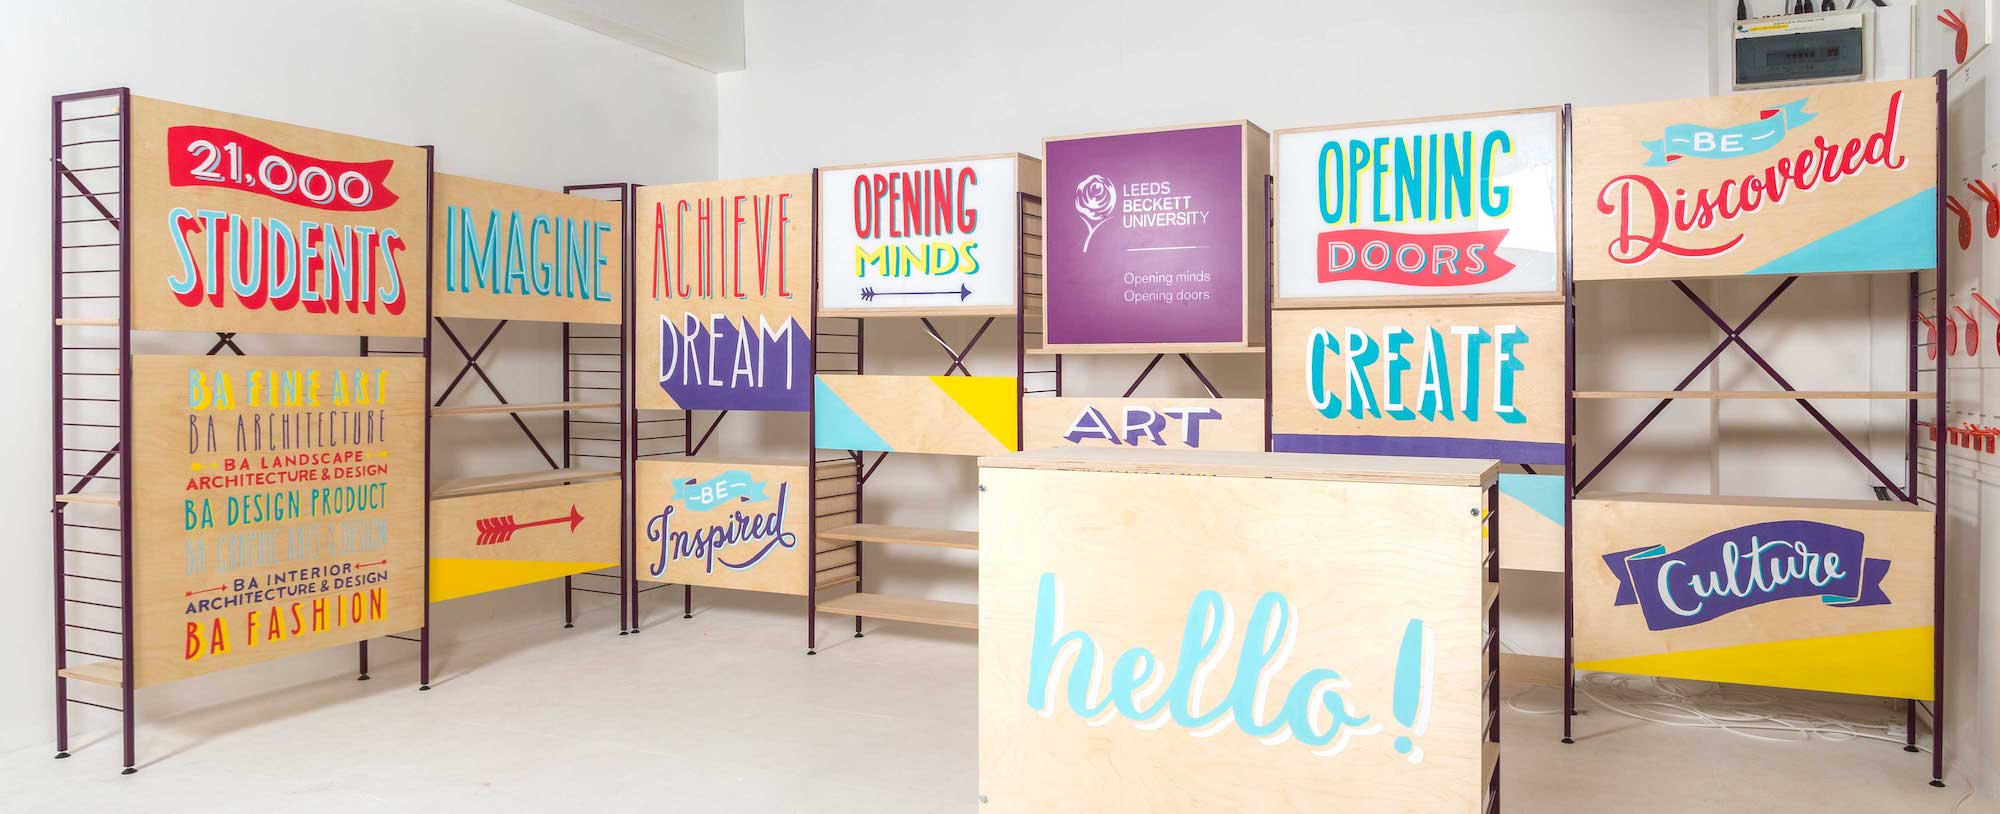 21,000
STUDENTS
BA FINE ART
BA ARCHITECTURE
BA LANDSCAPE
ARCHITECTURE & DESIGN
BA DESIGN PRODUCT
BA GRAPHIC ARTS & DESIGN
BA INTERIOR
ARCHITECTURE & DESIGN
BA FASHION
IMAGINE
ACHIEVE
DREAM
BE
Inspired
OPENING
MINDS
LEEDS
BECKETT
UNIVERSITY
Opening minds
Opening doors
ART
OPENING
DOORS
CREATE
BE
Discovered
Culture
hello!